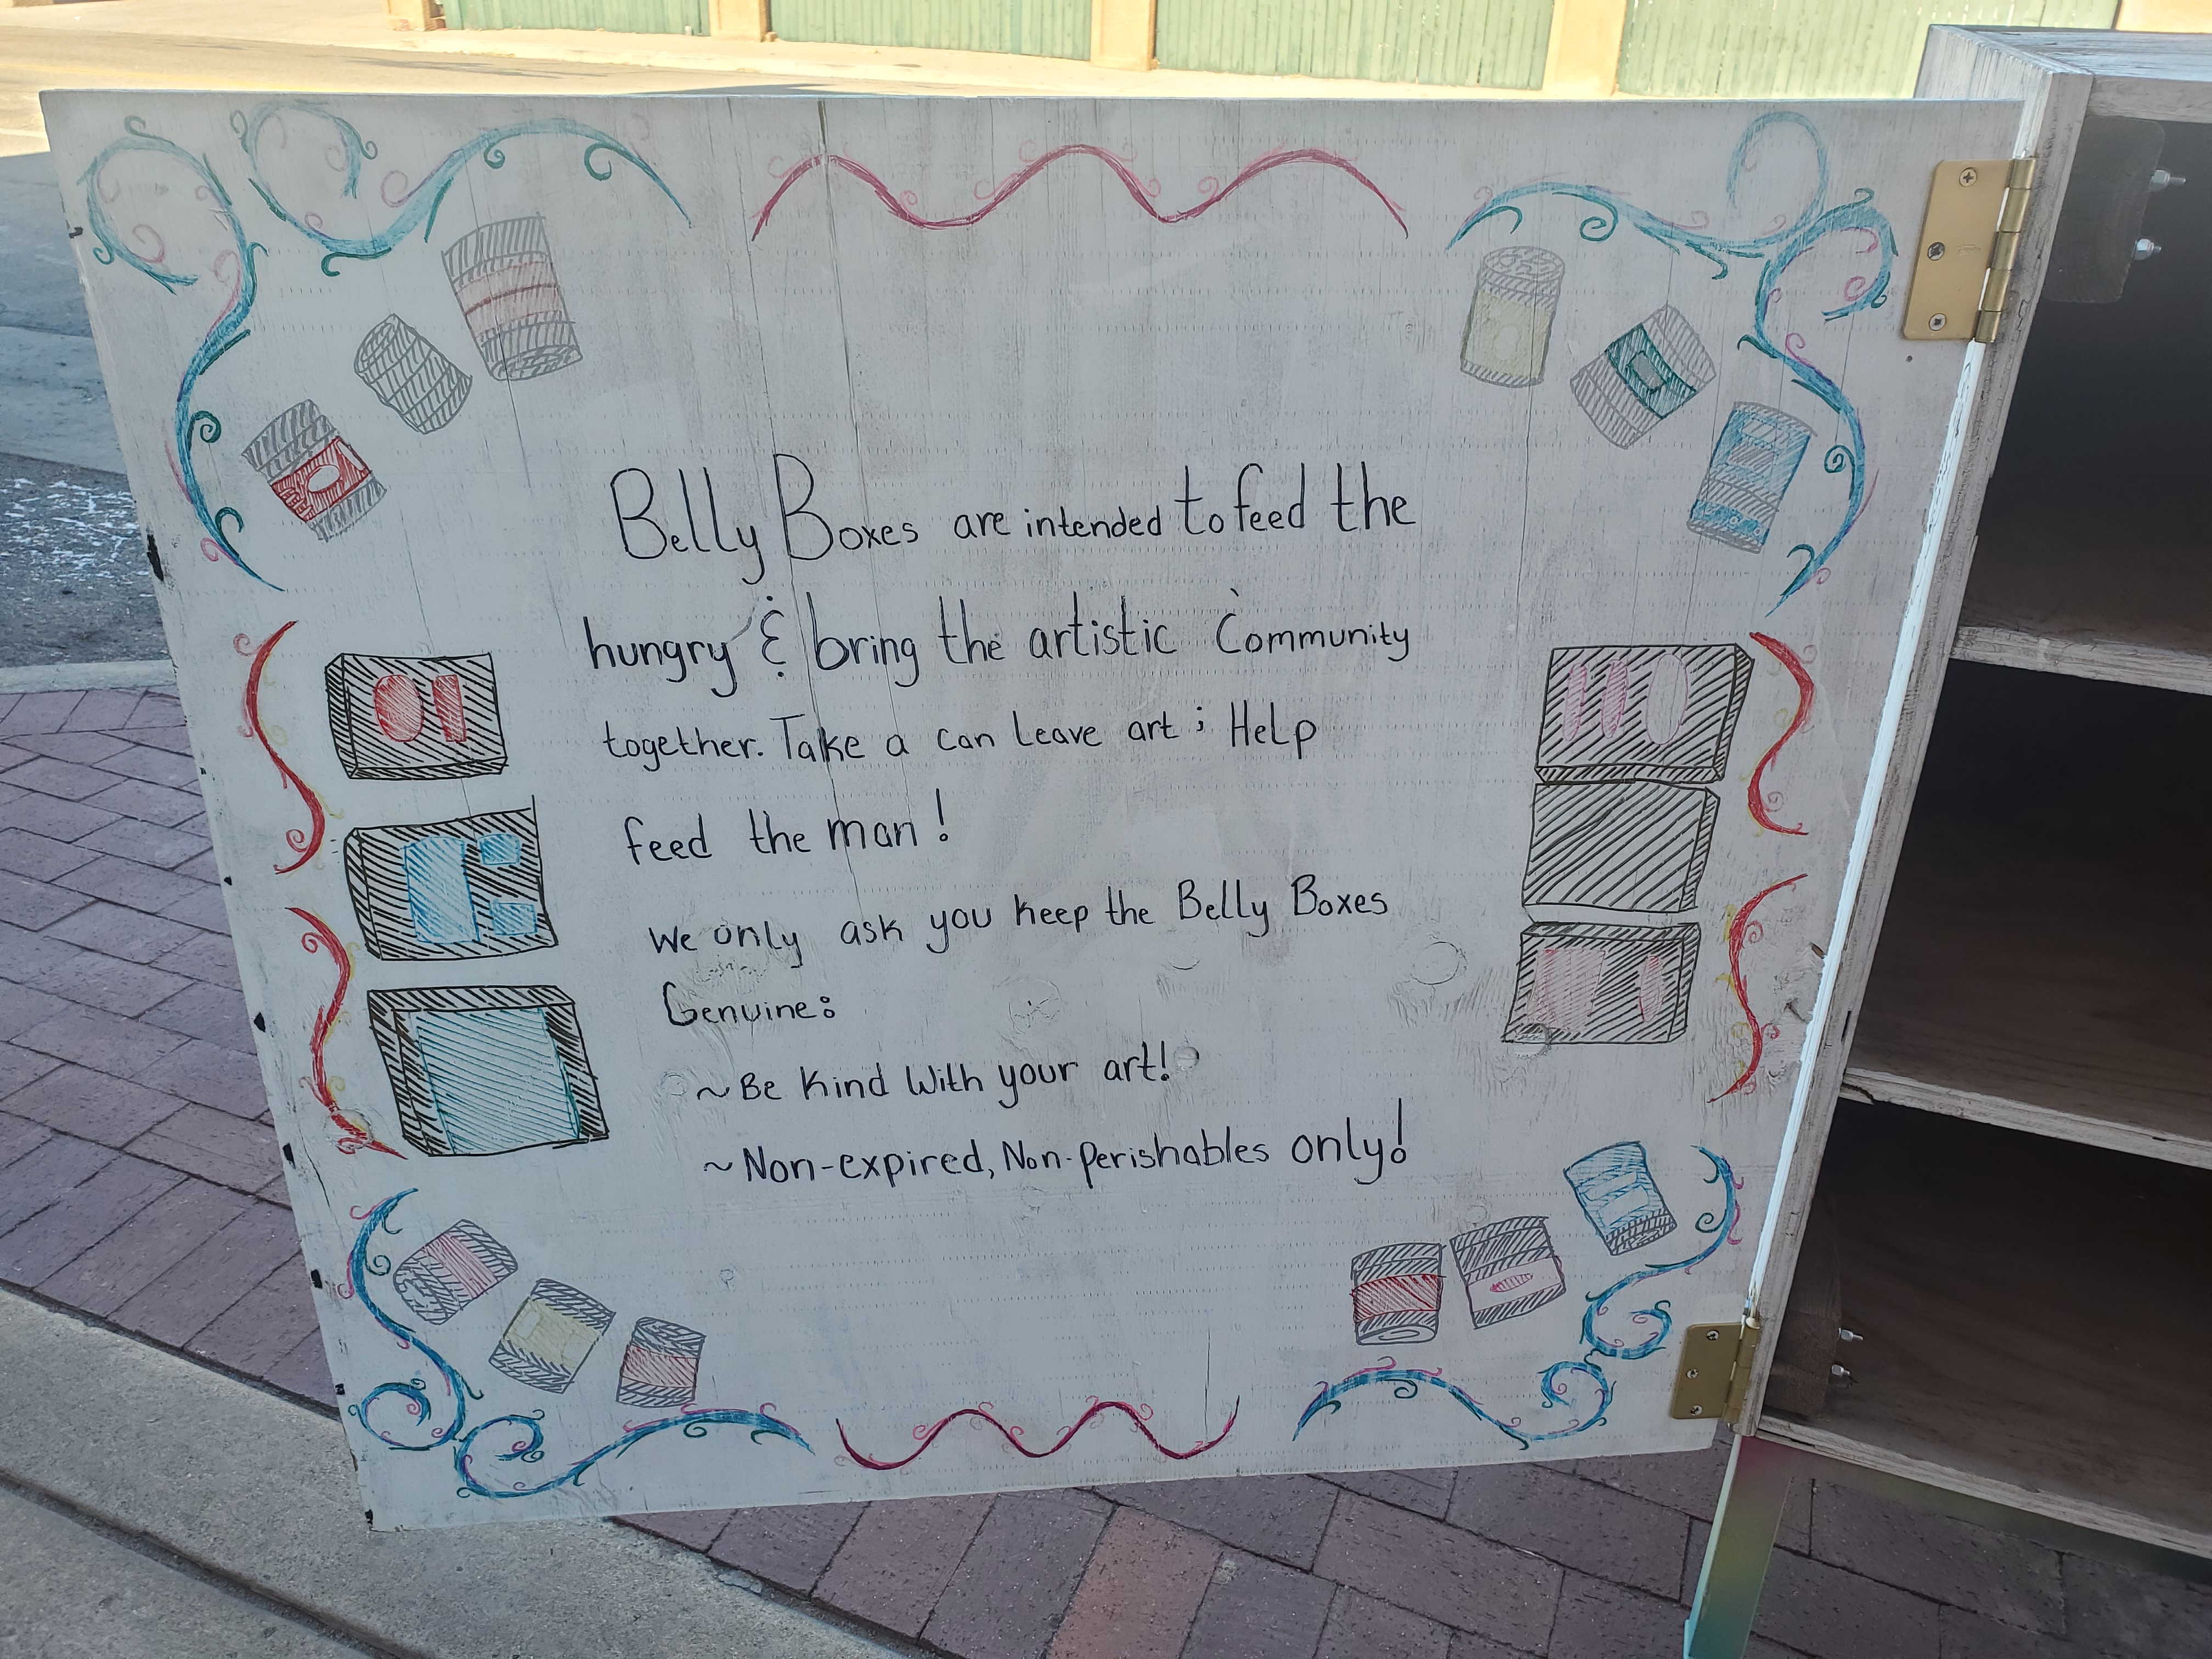 Belly Boxes are intended to feed the
hungry & bring the artistic Community
together. Take a can leave art ; Help
feed the man !
We only ask you keep the Belly Boxes
Genuine:
~Be Kind With your art!
~Non-expired, Non-perishables only!